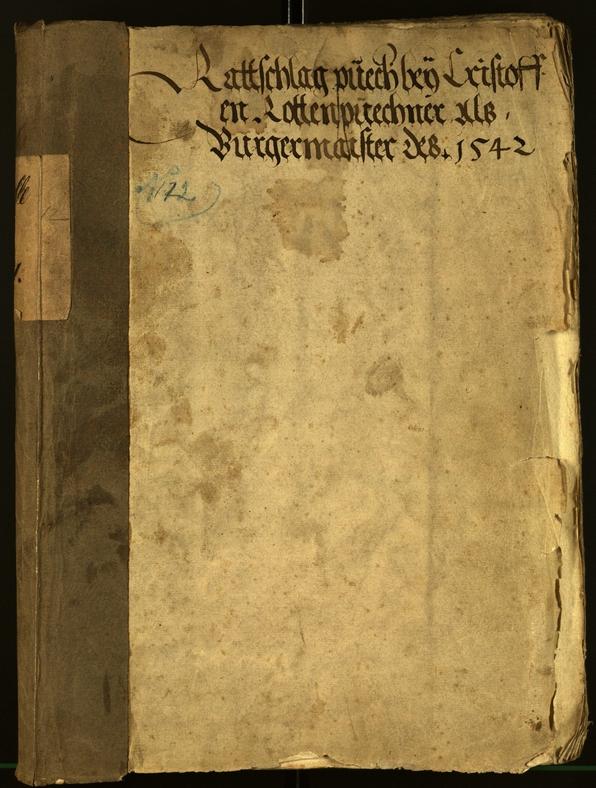 Rattschlag pŭech beÿ Cristoff
en Rottenpuechner Als
Burgermaister des . 1542
No 12
12